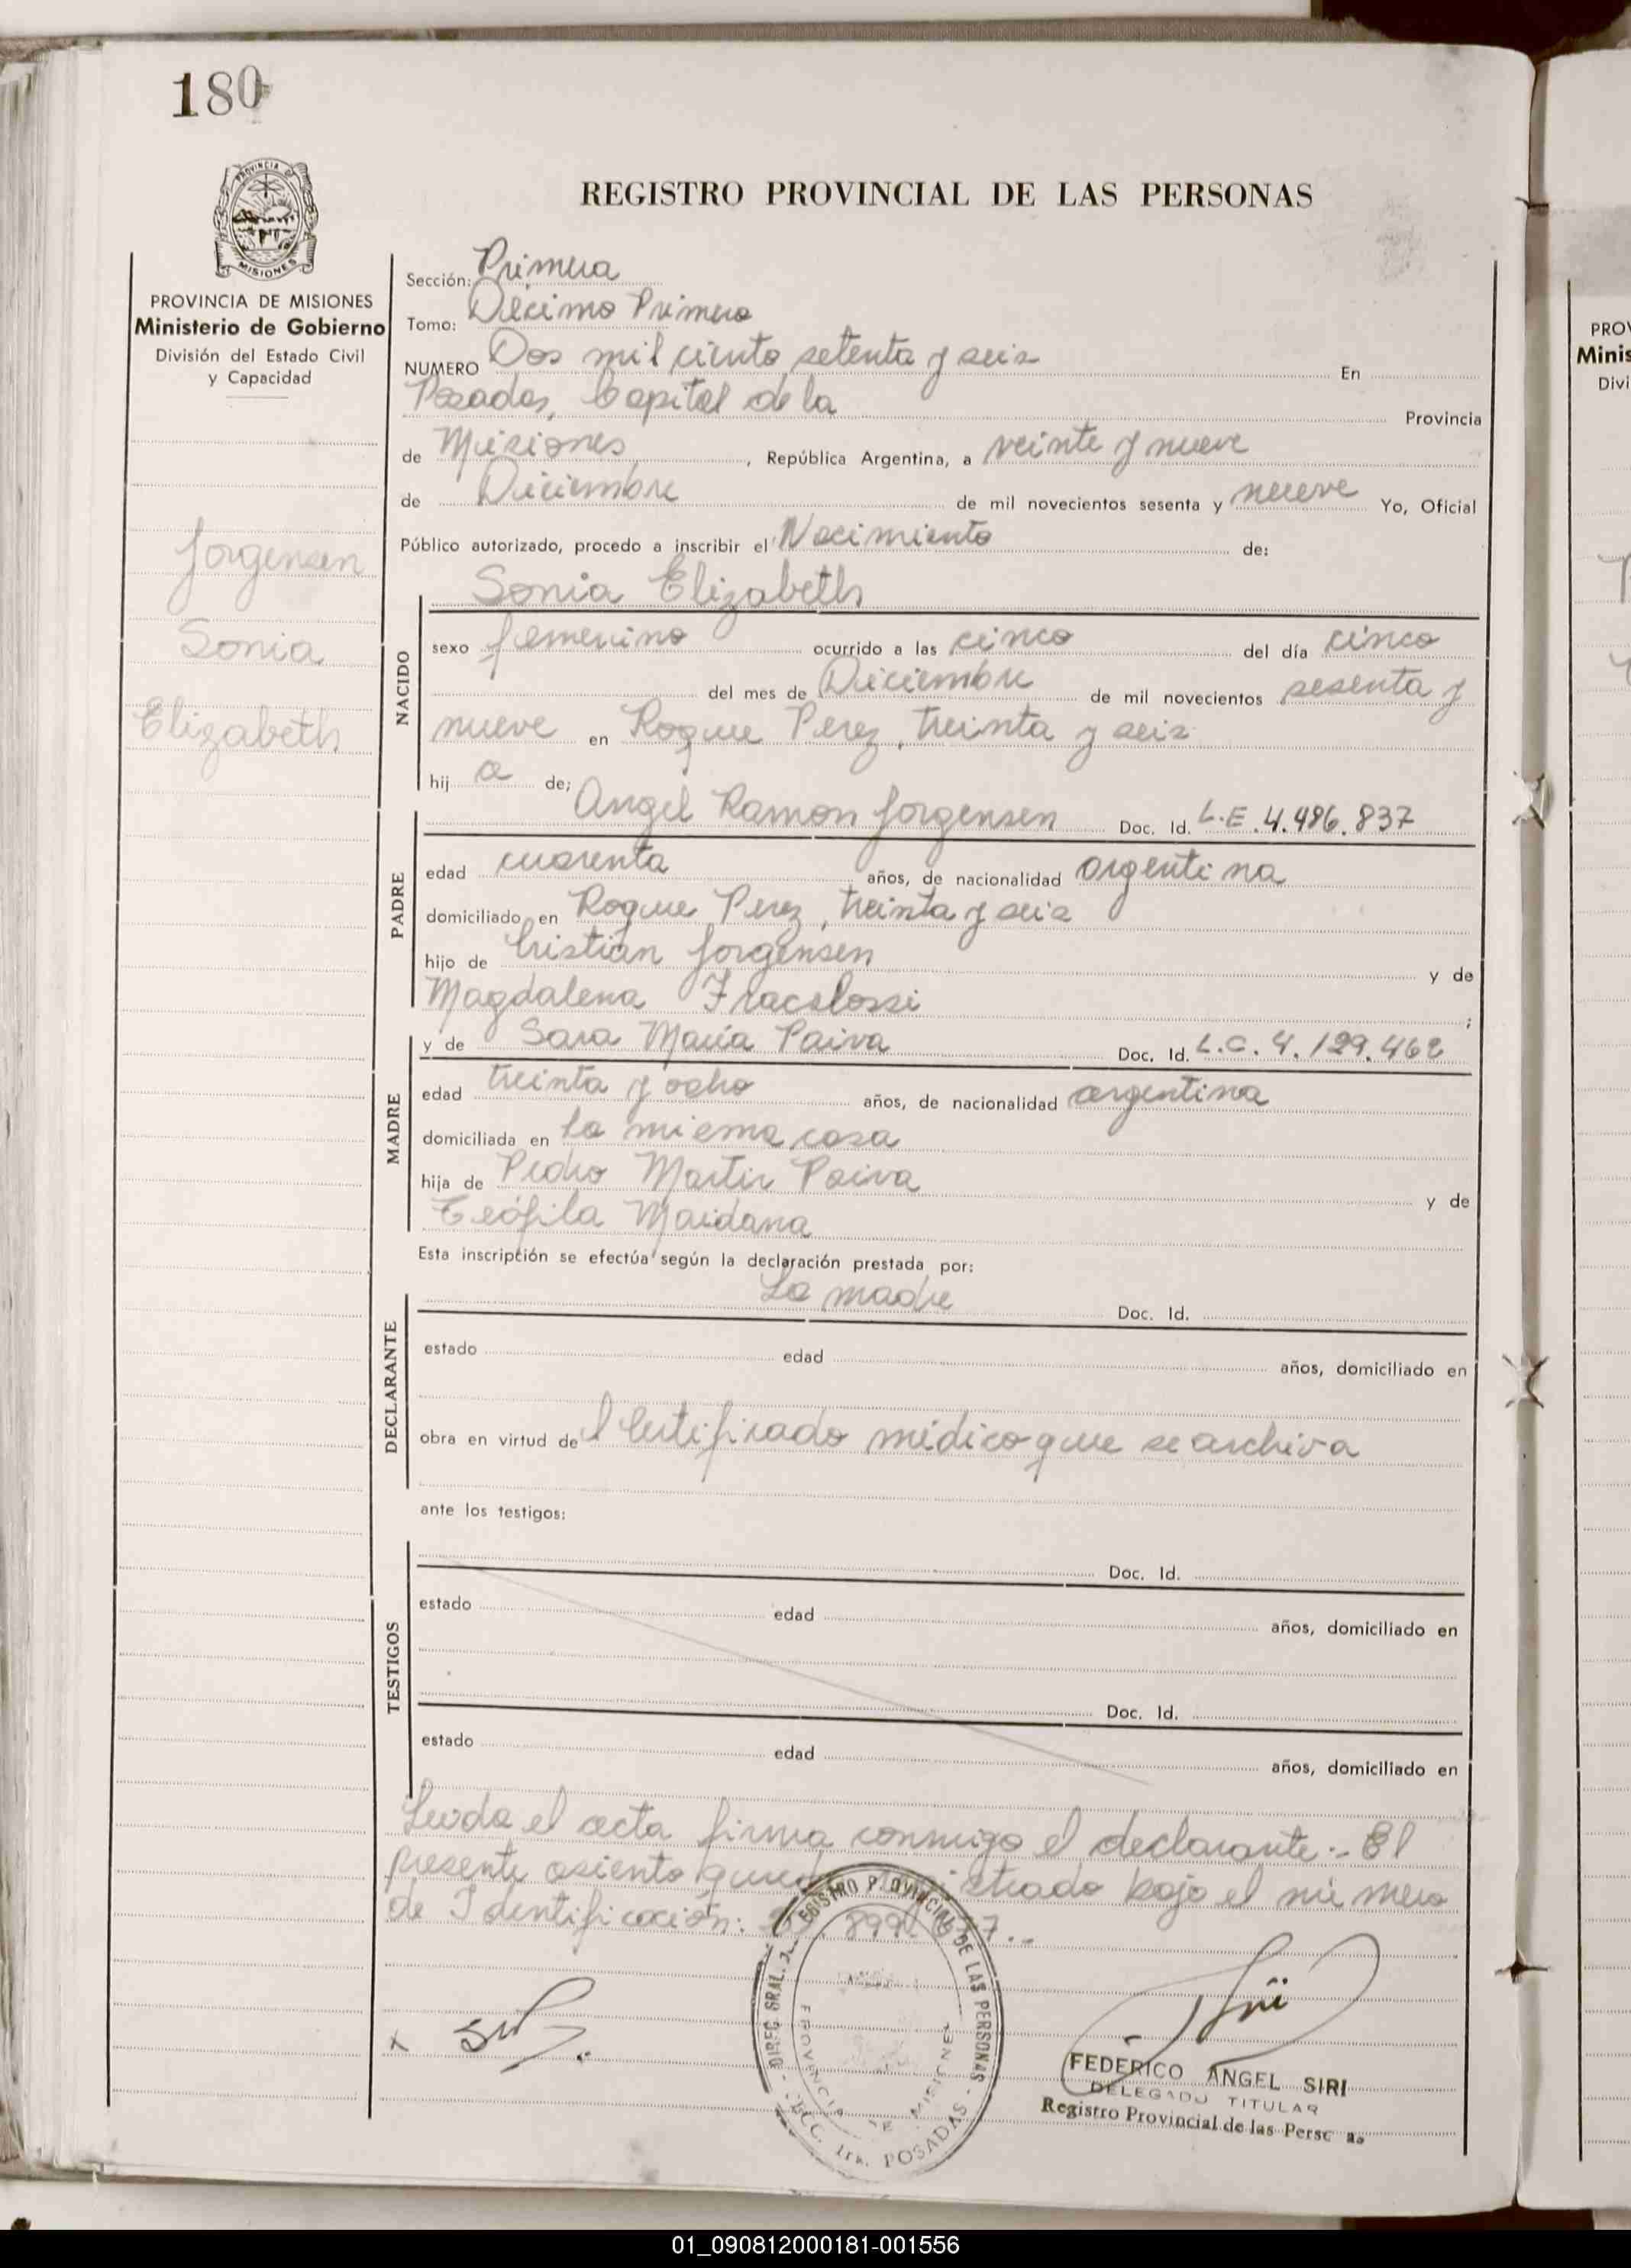 180
PROVINCIA
MISIONES
REGISTRO PROVINCIAL DE LAS PERSONAS
PROVINCIA DE MISIONES
Ministerio de Gobierno
División del Estado Civil
y Capacidad
Jorgensen
Sonia
Elizabeth
Sección: Primera
Tomo: Décimo Primero
NUMERO Dos mil ciento setenta y seis En
Posadas, Capital de la Provincia
de Misiones, República Argentina, a veinte y nueve
de Diciembre de mil novecientos sesenta y nueve Yo, Oficial
Público autorizado, procedo a inscribir el Nacimiento de:
Sonia Elizabeth
NACIDO
sexo femenino ocurrido a las cinco del día cinco
del mes de Diciembre de mil novecientos sesenta y
nueve en Roque Perez, treinta y seis
hij a de;
Angel Ramon Jorgensen Doc. Id. L.E. 4.486.837
PADRE
edad cuarenta años, de nacionalidad argentina
domiciliado en Roque Perez, treinta y seis
hijo de Cristian Jorgensen y de
Magdalena ;
y de Sara María Paiva Doc. Id. L.C. 4.129.462
MADRE
edad treinta y ocho años, de nacionalidad argentina
domiciliada en la misma casa
hija de Pedro Martir Paiva y de
Teófila Maidana
Esta inscripción se efectúa según la declaración prestada por:
La madre Doc. Id.
DECLARANTE
estado edad años, domiciliado en
obra en virtud del Certificado médico que se archiva
ante los testigos:
Doc. Id.
TESTIGOS
estado edad años, domiciliado en
Doc. Id.
estado edad años, domiciliado en
Leida el acta firma conmigo el declarante:- El
presente asiento bajo el número
de Identificación:
REGISTRO PROVINCIAL DE LAS PERSONAS
PROVINCIA DE MISIONES
POSADAS
x
FEDERICO ANGEL SIRI
DELEGADO TITULAR
Registro Provincial de las Pers as
01_090812000181-001556